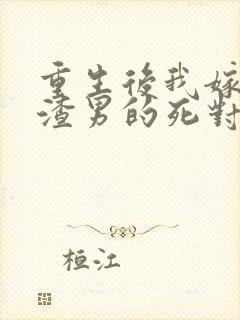 重生後我嫁
渣男的死對
桓江